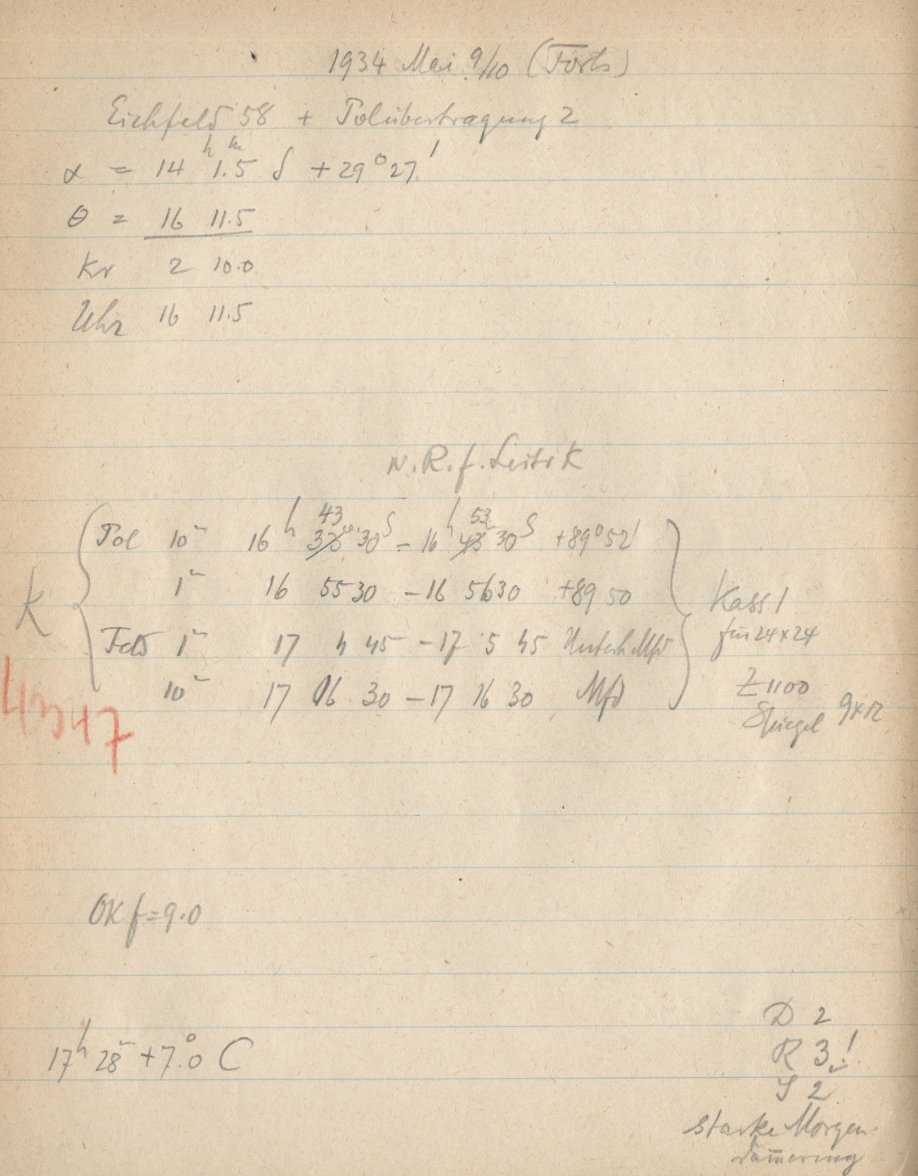 1934 Mai 9/10 (Forts)
Eichfeld 58 + Polübertragung 2
α = 14ʰ 1.5ᵐ δ +29° 27'
θ = 16 11.5
Kr 2 10.0
Uhr 16 11.5
N.R.f. Leitr K
Pol 10ᵐ 16ʰ 43ᵐ 30ˢ – 16ʰ 53ᵐ 30ˢ +89° 52'
1ᵐ 16 55 30 – 16 56 30 +89 50
K
Feld 1ᵐ 17 4 45 – 17 5 45 Mfd
10ᵐ 17 06 30 – 17 16 30 Mfd
Kass 1
für 24x24
Z 1100
Spiegel 9x12
4347
OK f=9.0
17ʰ 28ᵐ +7.°0 C
D 2
R 3!
S 2
starke Morgen
dämerung